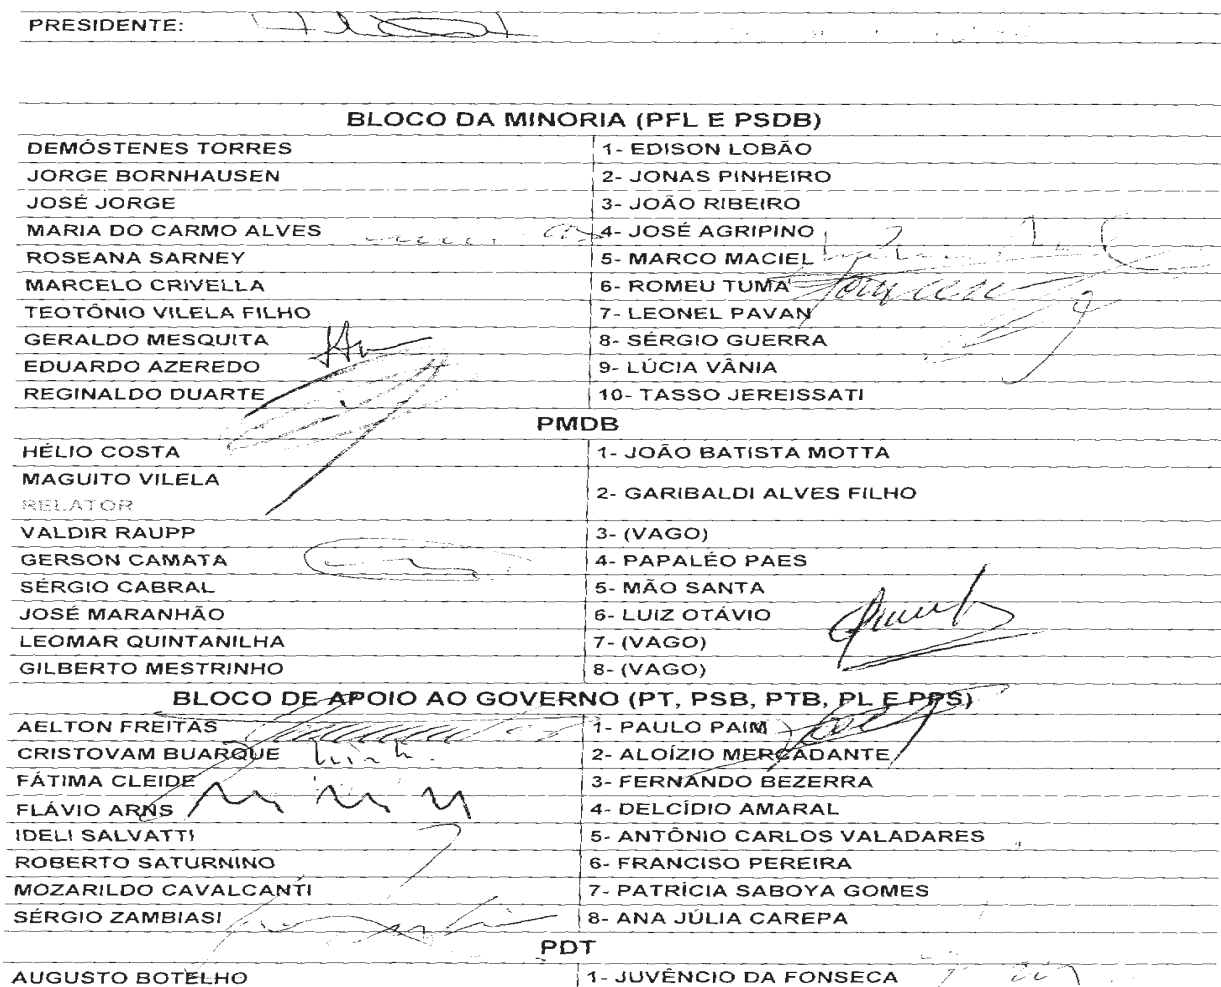 PRESIDENTE:
BLOCO DA MINORIA (PFL E PSDB)
DEMÓSTENES TORRES 1- EDISON LOBÃO
JORGE BORNHAUSEN 2- JONAS PINHEIRO
JOSÉ JORGE 3- JOÃO RIBEIRO
MARIA DO CARMO ALVES 4- JOSÉ AGRIPINO
ROSEANA SARNEY 5- MARCO MACIEL
MARCELO CRIVELLA 6- ROMEU TUMA
TEOTÔNIO VILELA FILHO 7- LEONEL PAVAN
GERALDO MESQUITA 8- SÉRGIO GUERRA
EDUARDO AZEREDO 9- LÚCIA VÂNIA
REGINALDO DUARTE 10- TASSO JEREISSATI
PMDB
HÉLIO COSTA 1- JOÃO BATISTA MOTTA
MAGUITO VILELA
RELATOR 2- GARIBALDI ALVES FILHO
VALDIR RAUPP 3- (VAGO)
GERSON CAMATA 4- PAPALÉO PAES
SÉRGIO CABRAL 5- MÃO SANTA
JOSÉ MARANHÃO 6- LUIZ OTÁVIO
LEOMAR QUINTANILHA 7- (VAGO)
GILBERTO MESTRINHO 8- (VAGO)
BLOCO DE APOIO AO GOVERNO (PT, PSB, PTB, PL E PPS)
AELTON FREITAS 1- PAULO PAIM
CRISTOVAM BUARQUE 2- ALOÍZIO MERCADANTE
FÁTIMA CLEIDE 3- FERNANDO BEZERRA
FLÁVIO ARNS 4- DELCÍDIO AMARAL
IDELI SALVATTI 5- ANTÔNIO CARLOS VALADARES
ROBERTO SATURNINO 6- FRANCISO PEREIRA
MOZARILDO CAVALCANTI 7- PATRÍCIA SABOYA GOMES
SÉRGIO ZAMBIASI 8- ANA JÚLIA CAREPA
PDT
AUGUSTO BOTELHO 1- JUVÊNCIO DA FONSECA